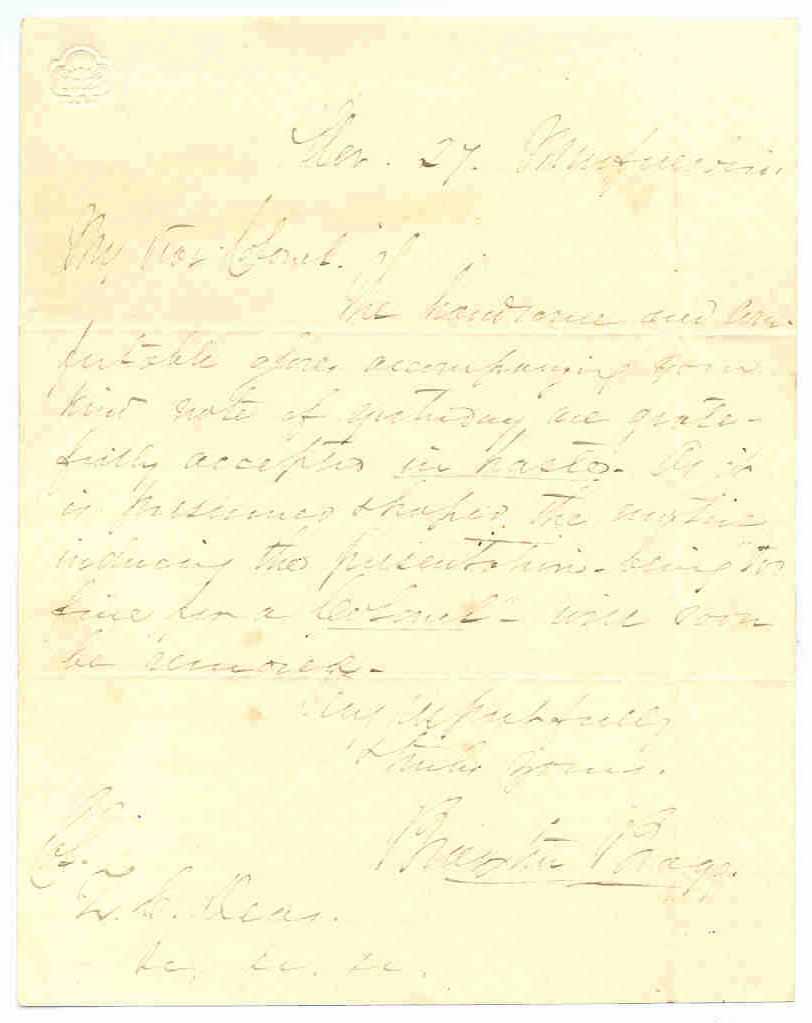 27.
My dear Colonel.
The handsome and com-
fortable gloves accompanying your
kind note of yesterday are grate-
fully accepted in haste. As it
is presumed & hoped the motive
inducing the presentation - being "too
fine for a Colonel" - will soon
be removed -
Very respectfully
& truly yours.
Braxton Bragg.
Col.
Z. C. Deas.
&c, &c. &c.